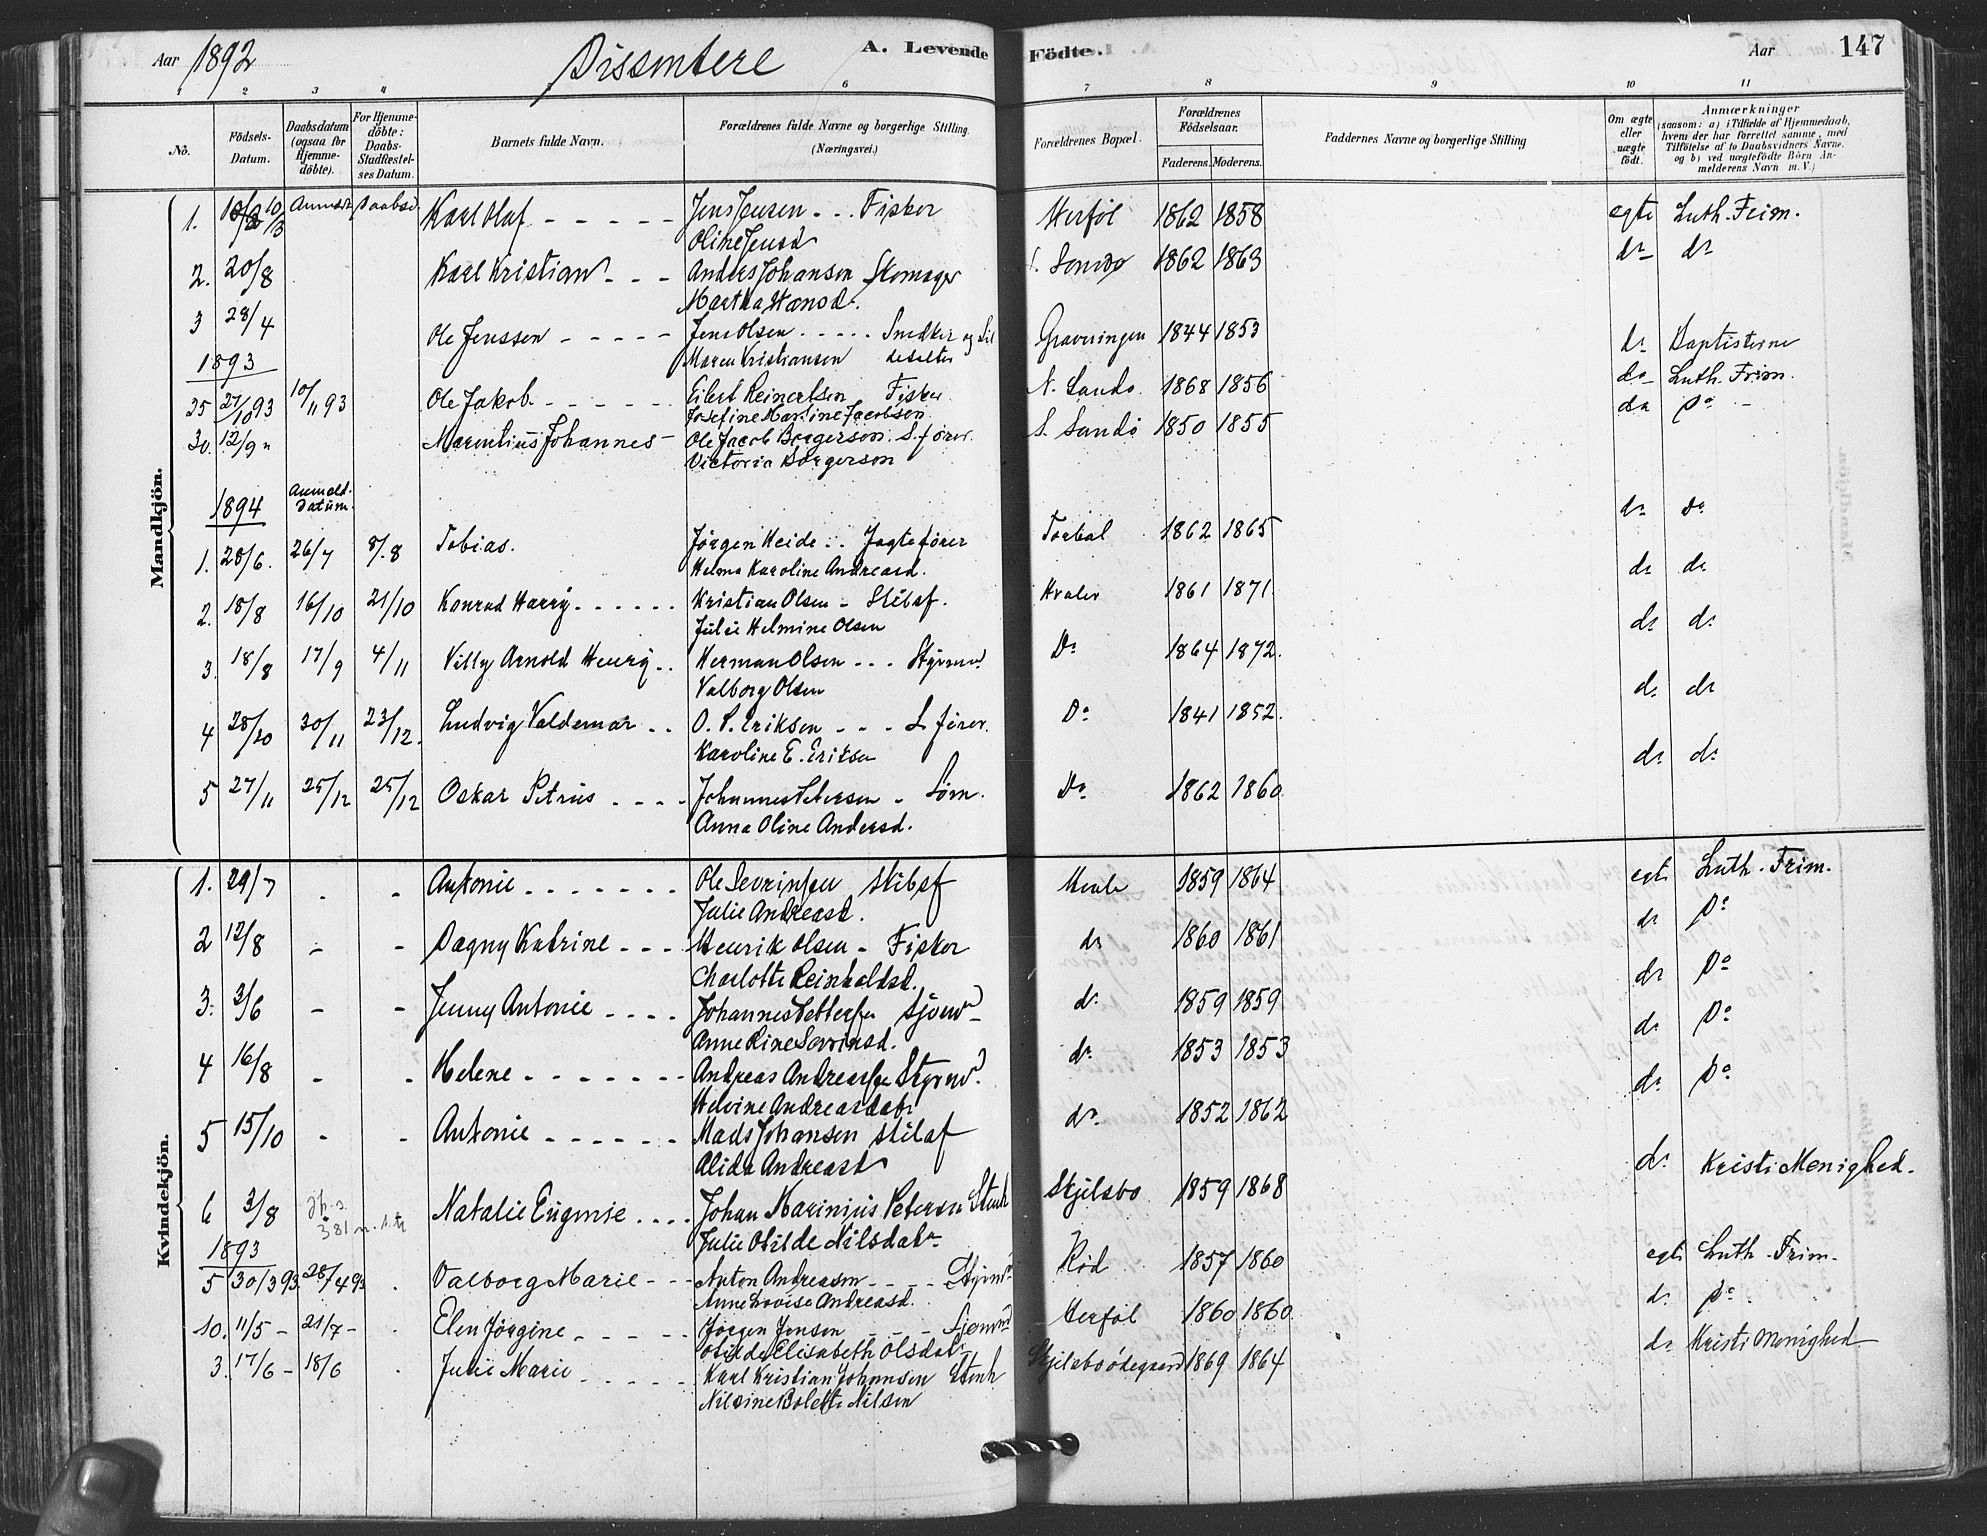 Aar 1892 Dissentere A. Levende Födte. Aar 147
1 2 3 4 6 7 8 9 10 11
No. Födsels-Datum. Daabsdatum (ogsaa for Hjemme-döbte). For Hjemme-döbte: Daabs-Stadfæstel-ses Datum. Barnets fulde Navn. Forældrenes fulde Navne og borgerlige Stilling. (Næringsvei.) Forældrenes Bopæl. Forældrenes Födselsaar. Faderens. Moderens. Faddernes Navne og borgerlige Stilling Om ægte eller uægte födt. Anmærkninger (saasom: a) i Tilfælde af Hjemmedaab, hvem der har forrettet samme, med Tilföielse af to Daabsvidners Navne, og b) ved uægtefödte Börn An-melderens Navn m. V.)
Mandkjön.
1. 10/3 Karl Olaf - - - - - Jens Jensen - - - Fisker Herføl 1862 1858 egte Luth. Frim.
Oline Jensd
2. 20/8 Karl Kristian - - - Anders Johansen Skomager S. Sandø 1862 1863 do do
Martha Hansd.
3 28/4 Ole Jenssen - - - - - Jens Olsen - - - - - Snedker og Graveringen 1844 1853 do Baptisterne
Maren Kristiansen
1893
25 27/10 93 10/11 93 Ole Jakob - - - - - Eilert Reinertsen Fisker N. Sandø 1868 1856 do Luth. Frim.
Josefine Martine Jacobsen
30. 12/9 " Marentius Johannes - Ole Jacob Borgerson. S. fører. S. Sandø 1850 1855 do Do -
Victoria Borgerson
1894 Anmeld. Datum.
1. 28/6. 26/7 8/8 Tobias. Jørgen Heide .. Jagtefører Torbal 1862 1865 do Do
Helma Karoline Andreasd.
2. 18/8 16/10 21/10 Konrad Harry - - - - - - Kristian Olsen - Stilaf. Hvaler 1861 1871 do do
Julie Helmine Olsen
3. 18/8 17/9 4/11 Villy Arnold Henry .. Herman Olsen - - - Styrmd. Do 1864 1872. do do
Valborg Olsen
4 28/10 30/11 23/12. Ludvig Valdemar .. O. P. Eriksen - - - S. fører. Do 1841 1852. do do
Karoline E. Eriksen
5 27/11 25/12 25/12 Oskar Petrus - - - - Johannes Petersen - Sørn. Do 1862 1860 do do
Anna Oline Andersd.
Kvindekjön.
1. 29/7 - - Antonie - - - - - - - Ole Sevrinsen Stilaf Hvaler 1859 1864 egte Luth. Frim.
Julie Andreasd.
2 12/8 - - Dagny Katrine - - - Henrik Olsen - Fisker do 1860 1861 do Do
Charlotte Reinholdsd.
3. 3/6 - - Jenny Antonie - - - - Johannes Pettersen Sjømd - do 1859 1859 do Do
Anne Rine Sevrinsd.
4 16/8 - - Helene - - - - - - - Andreas Andreassen Styrmd. do 1853 1853 do Do
Helvine Andreasdatr
5 15/10 - - Antonie - - - - - - Mads Johansen Stilaf do 1852 1862 do Do
Alida Andreasd
6 3/8 Natalie Eugenie - - - - Johan Marinius Peterson Stenh Skjelsbo 1859 1868 do Kristi Menighed.
Julie Otilde Nilsdatr
1893
5 30/3 93 28/4 93 - Valborg Marie - - - Anton Andreasen - - - - Styrmd Rød 1857 1860 egte Luth. Frim.
Anne Lovise Andreasd.
10. 11/5 - 21/7 - - Elen Jørgine - - - - - Jørgen Jensen - - - Sjømnd Herføl 1860 1860 do Do
Otilde Elisabeth Olsdatr
3. 17/6 - 18/6 - Julie Marie - - - - - Karl Kristian Johansen Stenh Skjelsbo ødegaard 1869 1864 do Kristi Menighed
Nilsine Bolette Nilsen